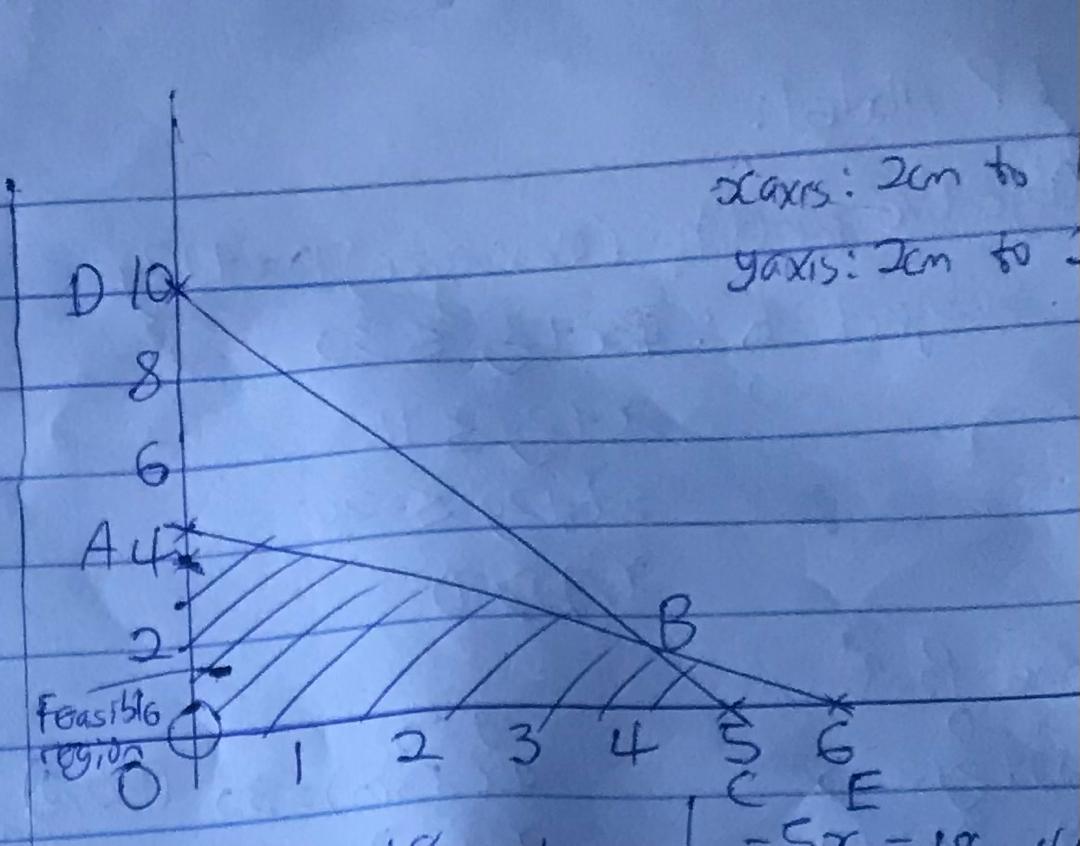 xaxis: 2cm to
yaxis: 2cm to
D 10
8
6
A 4
2
Feasible
region
O
1 2 3 4 5 6
C E
B